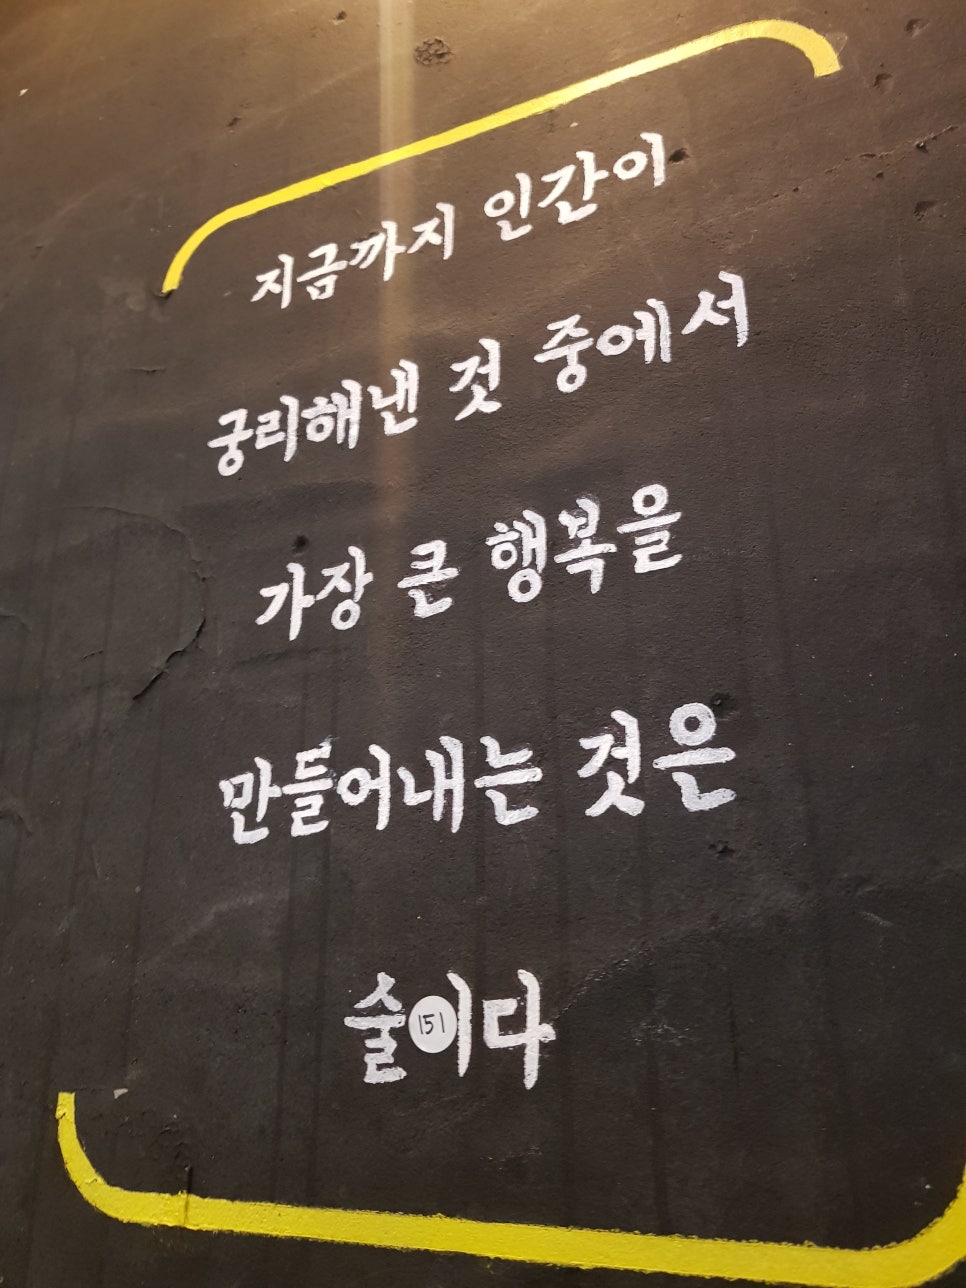 지금까지 인간이
궁리해낸 것 중에서
가장 큰 행복을
만들어내는 것은
술이다
151